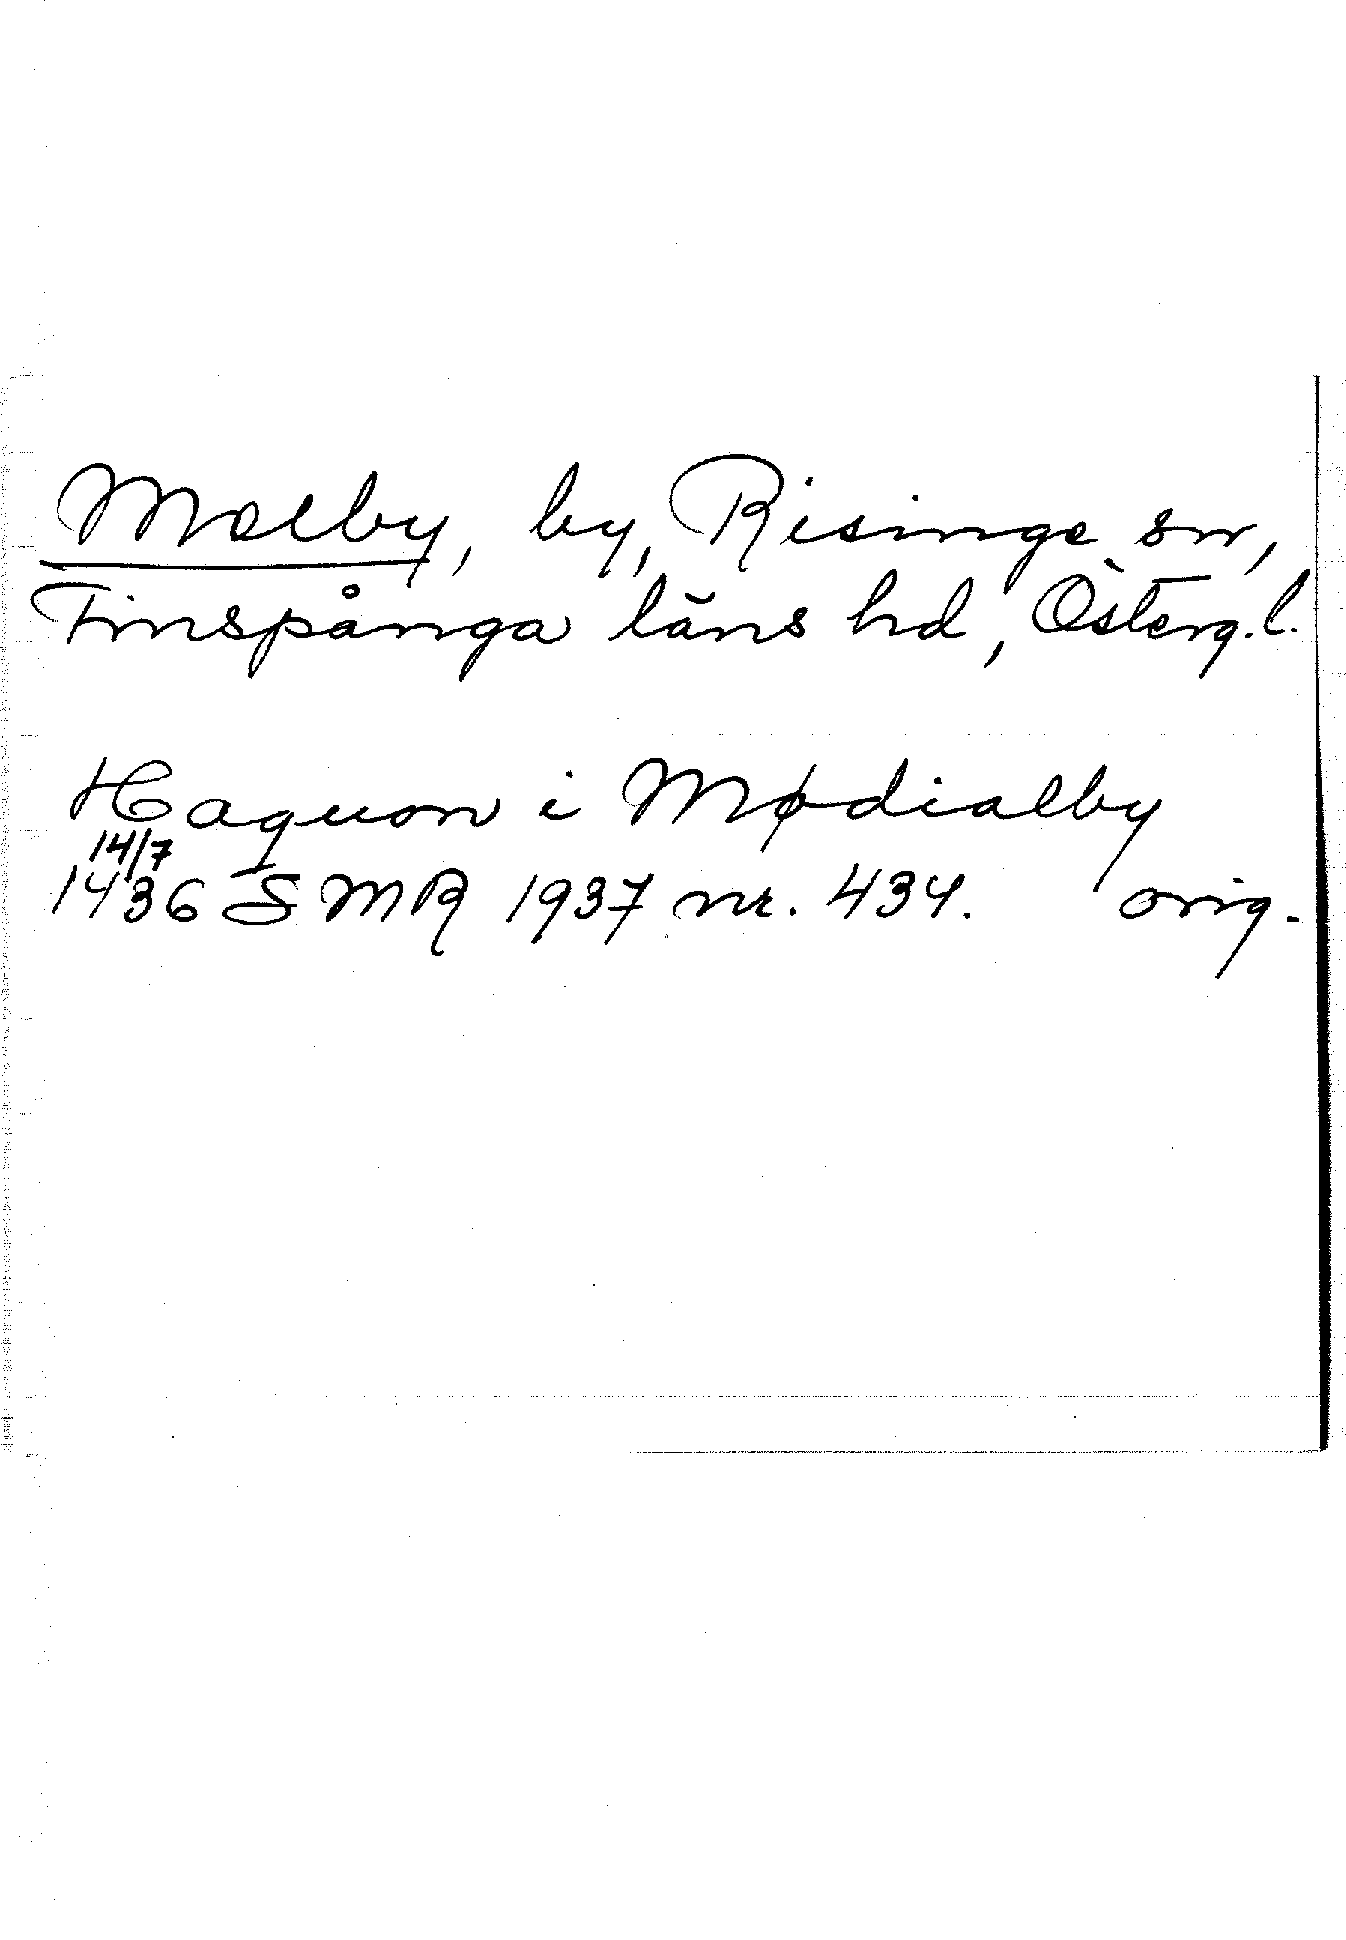 Malby, by, Risinge sn,
Finspånga läns hd, Österg.l.
Haquon i Mødialby
14/7
1436 SMR 1937 nr. 434. orig.